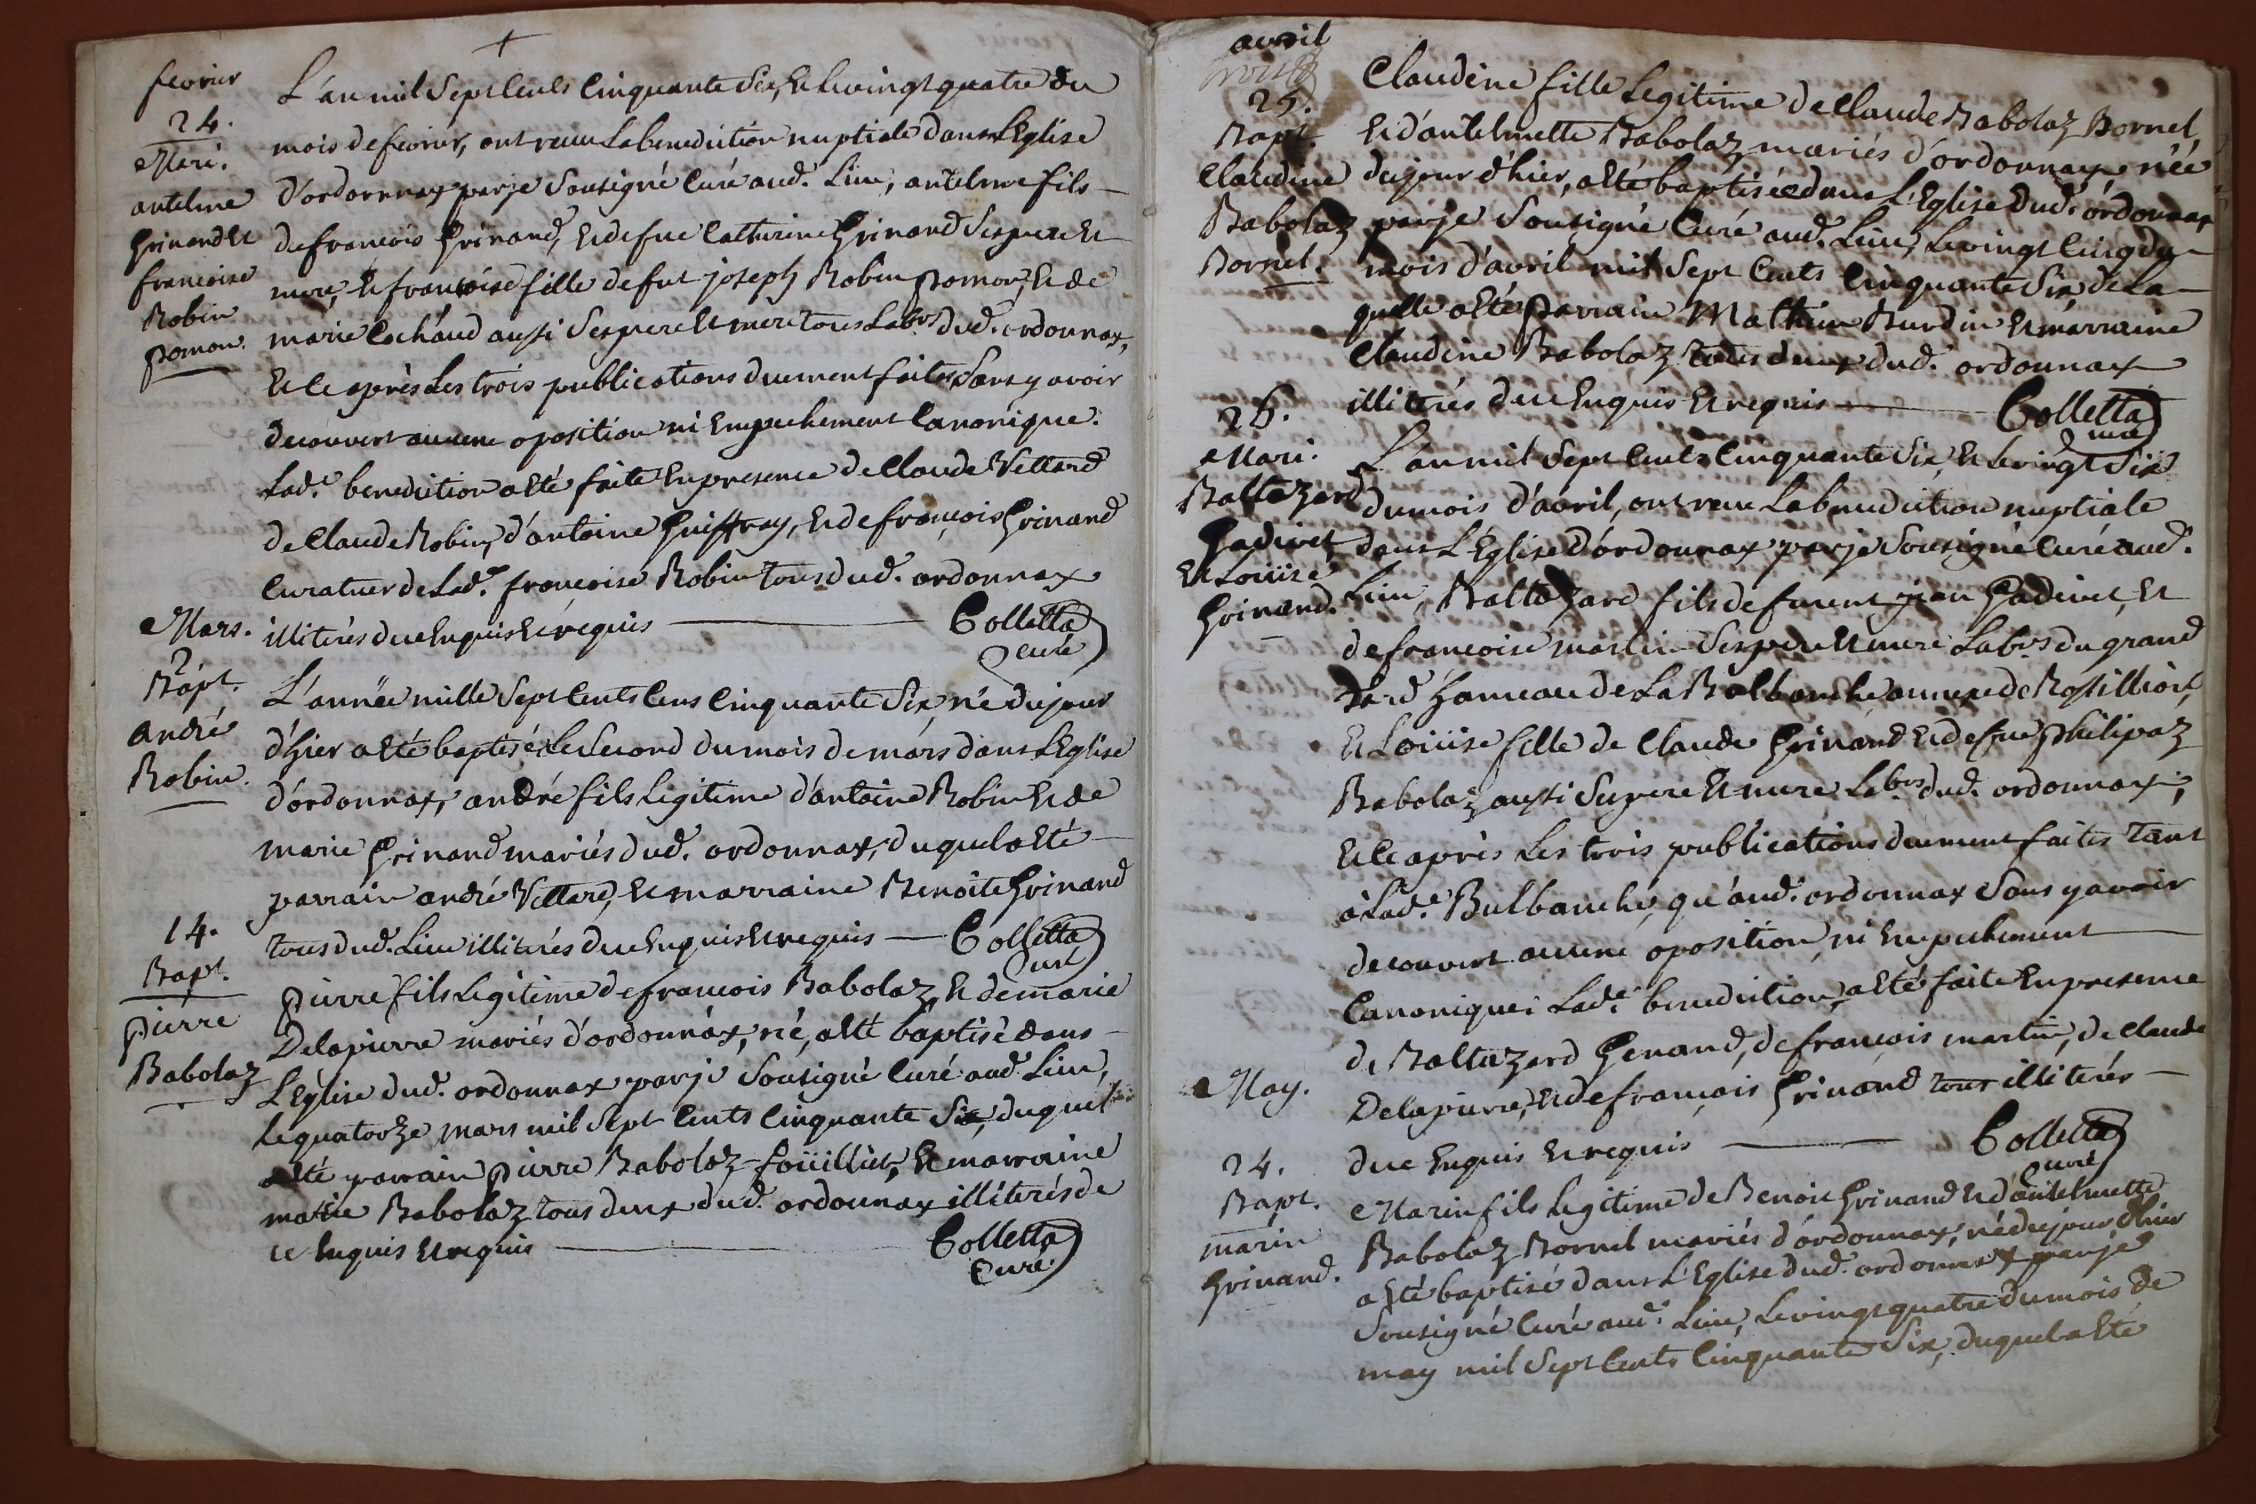 fevrier
24.
Mari.
antelme
Grinand Et
francoise
Robin
pomon.
L'an mil Sept Cents Cinquante Six, Et Le vingt quatre du
mois de fevrier, ont recu La benediction nuptiale dans L'Eglise
d'ordonnax par je Sousigné Curé aud. Lieu, antelme fils
de francois Grinand, Et de fue Catherine Grinand Ses pere Et
mere, Et francoise fille de fut joseph Robin pomon, Et de
marie Cochaud aussi Ses pere Et mere tous Labrs dud. ordonnax,
Et Ce après Les trois publications duement faites Sans y avoir
decouvert aucune oposition ni Empechement Canonique.
Lad.e benediction a Eté faite En presence de Claude Vellard
de Claude Robin, d'antoine Guiffray, Et de francois Grinand
Curateur de Lad.e francoise Robin tous dud. ordonnax
illiterés de ce Enquis Et requis Colletta
curé
Mars.
2
Bapt.
André
Robin.
L'année mille Sept Cents Cens Cinquante Six, né du jour
d'hier a Eté baptisé Le Second du mois de mars dans L'Eglise
d'ordonnax, andré fils Legitime d'antoine Robin Et de
marie Grinand mariés dud. ordonnax, duquel a Eté
parrain andré Vellard, Et marraine Benoite Grinand
tous dud. Lieu illiterés de ce Enquis Et requis Colletta
curé
14.
Bapt.
pierre
Babolaz
pierre fils Legitime de francois Babolaz, Et de marie
Delapierre mariés d'ordonnax, né, a Eté baptisé dans
L'Eglise dud. ordonnax par je Sousigné Curé aud. Lieu,
Le quatorze mars mil Sept Cents Cinquante Six, duquel
a Eté parrain pierre Babolaz fouilliet, Et marraine
marie Babolaz tous deux dud. ordonnax illiterés de
ce Enquis Et requis Colletta
Curé.
avril
25.
Bapt.
Claudine
Babolaz
Bornel.
Claudine fille Legitime de Claude Babolaz Bornel,
Et d'antelmette Babolaz mariés d'ordonnax, née
du jour d'hier, a Eté baptisée dans L'Eglise dud. ordonnax
par je Sousigné Curé aud. Lieu, Le vingt Cinq du
mois d'avril mil Sept Cents Cinquante Six de La
quelle a Eté parrain Mathieu Burdin Et marraine
Claudine Babolaz tous deux dud. ordonnax
illiterés de ce Enquis Et requis Colletta
curé
26.
Mari.
Baltazard
Gadivet
Et Loüise
Grinand.
L'an mil Sept Cents Cinquante Six, Et Le vingt Six
du mois d'avril, ont recu La benediction nuptiale
dans L'Eglise d'ordonnax par je Sousigné Curé aud.
Lieu, Baltazard fils de furent jean Gadivet, Et
de francoise martin Ses pere Et mere Labrs du grand
hameau de La Balbanche annexe de Rossillion,
Et Loüise fille de Claude Grinand Et de fue philipaz
Babolaz aussi Ses pere Et mere Labrs dud. ordonnax;
Et Ce après Les trois publications duement faites tant
à Lad.e Bulbanche, qu'aud. ordonnax Sans y avoir
decouvert aucune oposition, ni Empechement
Canonique. Lad.e benediction, a Eté faite En presence
de Baltazard Genand, de francois martin, de Claude
Delapierre, Et de francois Grinand tous illiterés
de ce Enquis Et requis Colletta
curé
May.
24.
Bapt.
marin
Grinand.
Marin fils Legitime de Benoit Grinand Et d'antelmette
Babolaz Bornel mariés d'ordonnax, né du jour d'hier
a Eté baptisé dans L'Eglise dud. ordonnax par je
Sousigné Curé aud. Lieu, Le vingt quatre du mois de
may mil Sept Cents Cinquante Six, duquel a Eté